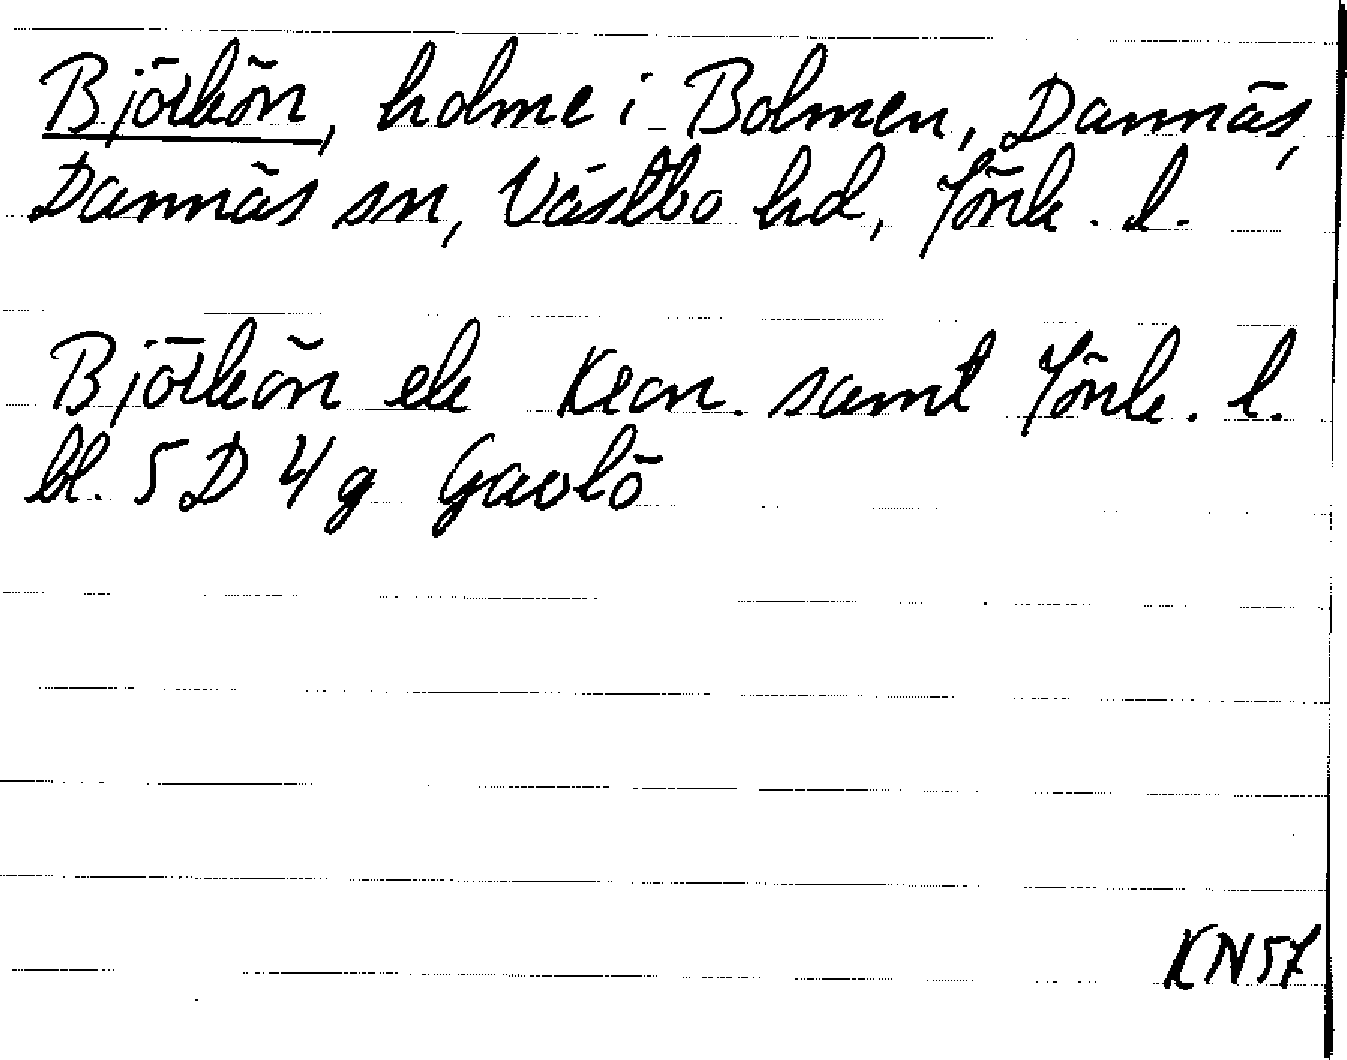 Björkön, holme i Bolmen, Dannäs,
Dannäs sn, Västbo hd, Jönk. l.
Björkön ek Kron. samt Jönk. l.
bl. 5D 4g Gavlö
KN57